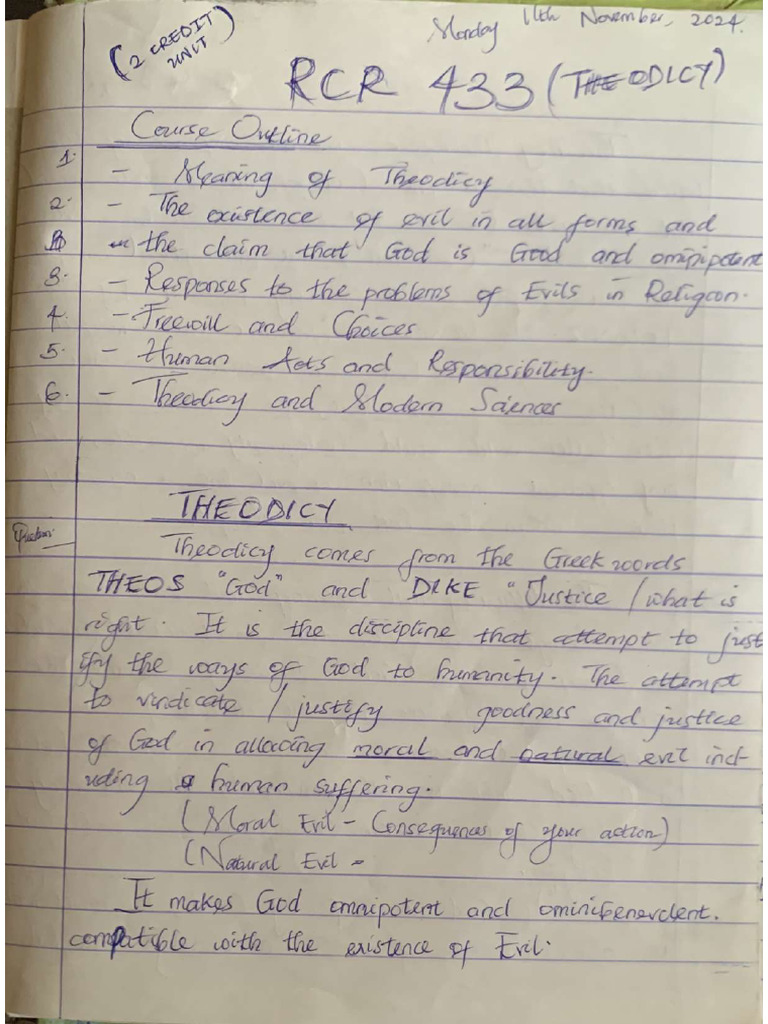 Monday 11th November, 2024.
(2 CREDIT UNIT)
RCR 433 (THEODICY)
Course Outline
1. - Meaning of Theodicy
2. - The existence of evil in all forms and
the claim that God is Good and omipipotent
3. - Responses to the problems of Evils in Religion.
4. - Freewill and Choices
5. - Human Acts and Responsibility.
6. - Theodicy and Modern Sciences
THEODICY
Question
Theodicy comes from the Greek words
THEOS "God" and DIKE "Justice / what is
right. It is the discipline that attempt to just
ify the ways of God to humanity. The attempt
to vindicate / justify goodness and justice
of God in allowing moral and natural evil incl-
uding human suffering.
(Moral Evil - Consequences of your action)
(Natural Evil -
It makes God omnipotent and ominibenevolent.
compatible with the existence of Evil.